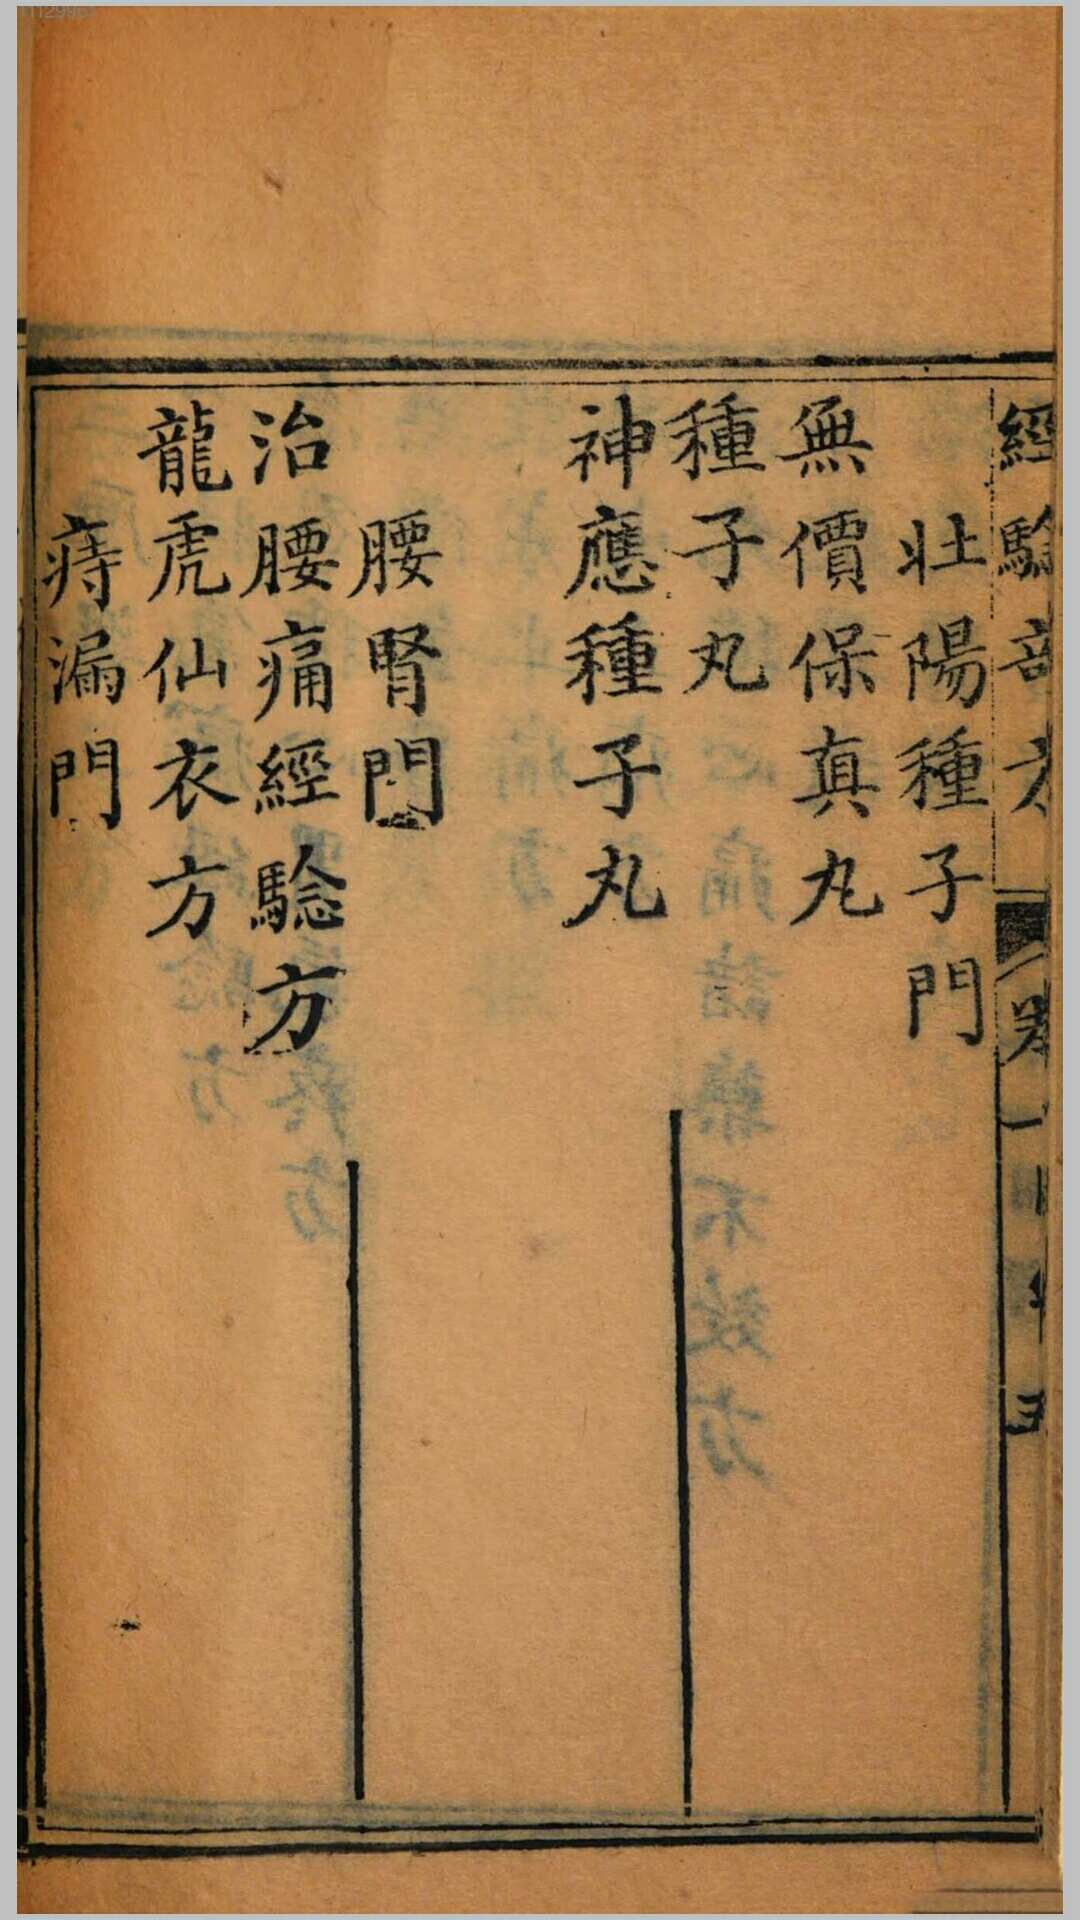 壯陽種子門
無價保真丸
種子丸
神應種子丸
腰腎門
治腰痛經騐方
龍虎仙衣方
痔漏門